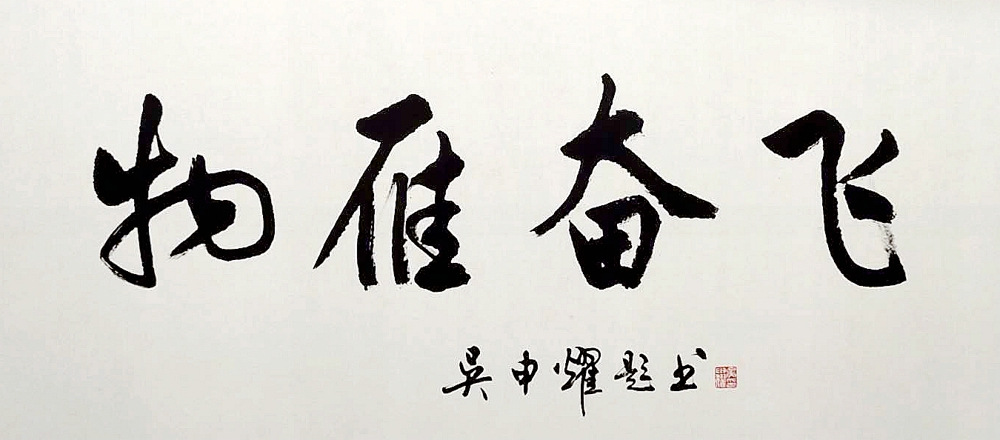 物雁奋飞
吴申耀题书